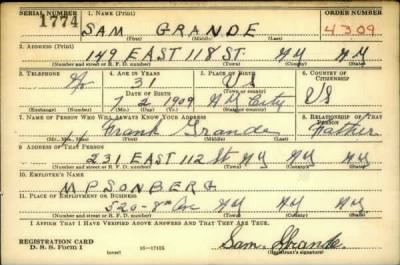 SERIAL NUMBER 1. NAME (Print) ORDER NUMBER
1774 SAM GRANDE 4309
(First) (Middle) (Last)
2. ADDRESS (Print)
149 EAST 118 ST. NY NY
(Number and street or R. F. D. number) (Town) (County) (State)
3. TELEPHONE 4. AGE IN YEARS 5. PLACE OF BIRTH 6. COUNTRY OF CITIZENSHIP
31 US
DATE OF BIRTH (Town or county)
7 2 1909 NY City US
(Exchange) (Number) (Mo.) (Day) (Yr.) (State or country)
7. NAME OF PERSON WHO WILL ALWAYS KNOW YOUR ADDRESS 8. RELATIONSHIP OF THAT PERSON
Frank Grande Father
(Mr., Mrs., Miss) (First) (Middle) (Last)
9. ADDRESS OF THAT PERSON
231 EAST 112 St NY NY NY
(Number and street or R. F. D. number) (Town) (County) (State)
10. EMPLOYER'S NAME
M P SONBERG
11. PLACE OF EMPLOYMENT OR BUSINESS
520 - 8th Ave NY NY NY
(Number and street or R. F. D. number) (Town) (County) (State)
I AFFIRM THAT I HAVE VERIFIED ABOVE ANSWERS AND THAT THEY ARE TRUE.
REGISTRATION CARD
D. S. S. Form 1 16-17105 Sam Grande
(Registrant's signature)